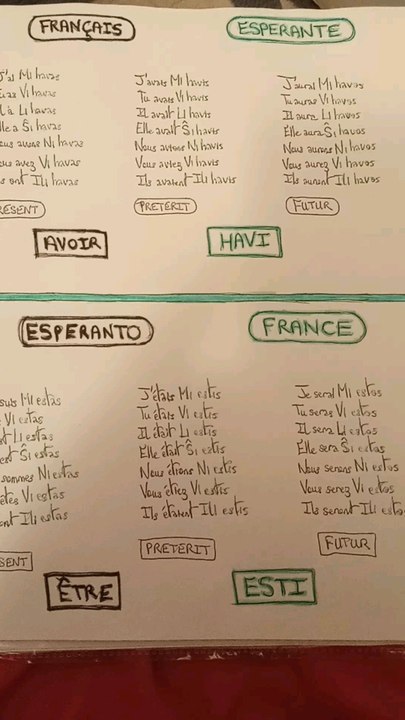 FRANÇAIS ESPERANTE
J'ai Mi havas J'avais Mi havis J'aurai Mi havos
Vi havas Tu avais Vi havis Tu auras Vi havos
Il a Li havas Il avait Li havis Il aura Li havos
Elle a Ŝi havas Elle avait Ŝi havis Elle aura Ŝi havos
Ni havas Nous avions Ni havis Nous aurons Ni havos
avez Vi havas Vous aviez Vi havis Vous aurez Vi havos
ont Ili havas Ils avaient Ili havis Ils auront Ili havos
RÉSENT PRETERIT FUTUR
AVOIR HAVI
ESPERANTO FRANCE
suis Mi estas J'étais Mi estis Je serai Mi estos
Vi estas Tu étais Vi estis Tu seras Vi estos
Li estas Il était Li estis Il sera Li estos
Ŝi estas Elle était Ŝi estis Elle sera Ŝi estos
sommes Ni estas Nous étions Ni estis Nous serons Ni estos
êtes Vi estas Vous étiez Vi estis Vous serez Vi estos
Ili estas Ils étaient Ili estis Ils seront Ili
SENT PRETERIT FUTUR
ÊTRE ESTI